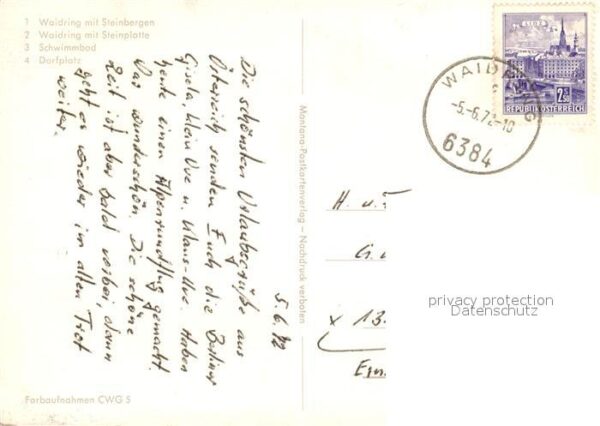 1 Waidring mit Steinbergen
2 Waidring mit Steinplatte
3 Schwimmbad
4 Dorfplatz
5.6.72
Die schönsten Urlaubsgrüße aus
Österreich senden Euch die Berliner
Gisela, klein Uve u. Klaus-Uve. Haben
heute einen Alpenrundflug gemacht.
Das wunderschön. Die schöne
Zeit ist aber bald vorbei, dann
geht es wieder im alten Trott
weiter.
Farbaufnahmen CWG 5
Montana-Postkartenverlag – Nachdruck verboten
LINZ
2.50
REPUBLIK ÖSTERREICH
WAIDRING
-5.-6.72-10
6384
H. u.
G.
x 13.
privacy protection
Datenschutz